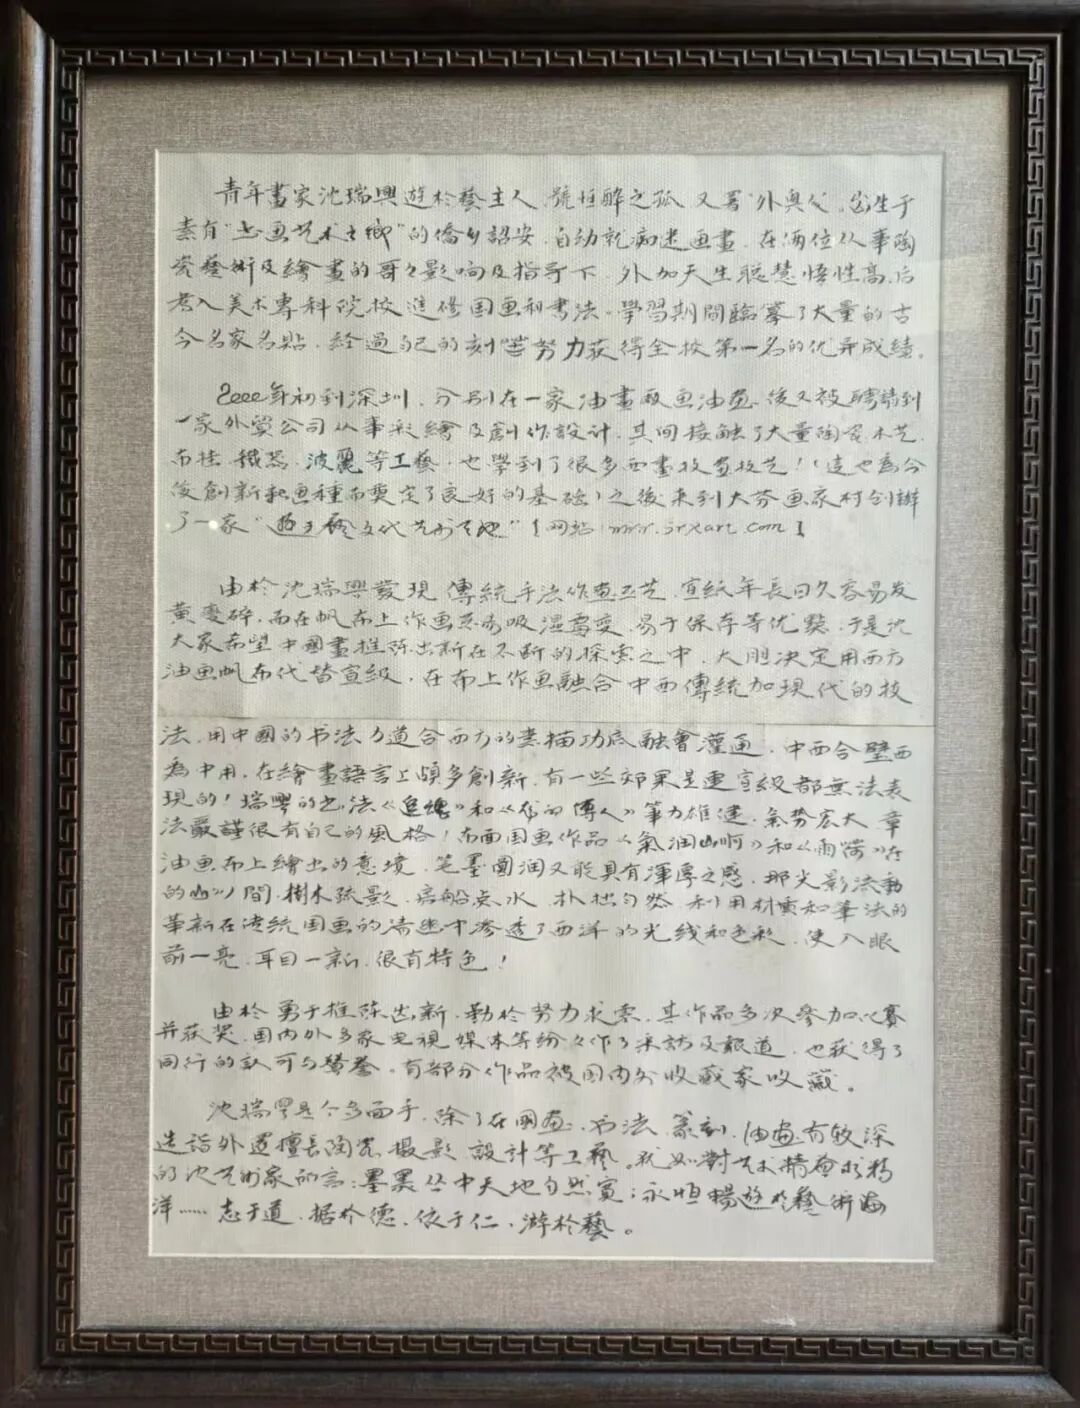 青年畫家沈瑞興遊於藝主人，號恒醉之孤，又署“外奥父”，出生于
素有“书画艺术之鄉”的僑乡詔安，自幼就痴迷画畫，在两位从事陶
瓷藝術及繪畫的哥々影响及指导下，外加天生聪慧悟性高，后
考入美术專科院校進修国画和书法。學習期間臨摹了大量的古
今名家名貼，经過自己的刻苦努力获得全校第一名的优异成績。
2000年初到深圳，分别在一家油畫廠画油画，後又被聘請到
一家外贸公司从事彩繪及創作設计，其间接触了大量陶瓷木艺，
布挂，鐵器，波麗等工藝，也學到了很多西畫技画技艺！（這也為今
後創新和画種而奠定了良好的基礎）之後来到大芬画家村创辦
了一家“遊于藝文化艺术天地”【网站：www.srxart.com】
由於沈瑞興發現，傳統手法作画工艺，宣紙年長日久容易发
黄变碎，而在帆布上作画不易吸湿霉变，易于保存等优點，于是沈
大家希望中國畫推陈出新在不断的探索之中，大胆决定用西方
油画帆布代替宣紙，在布上作画融合中西傳統加現代的技
法，用中國的书法力道合西方的素描功底融會灌通，中西合壁西
為中用，在繪畫語言上頗多創新，有一些効果是連宣紙都無法表
現的！瑞興的书法《追魂》和《龙的傳人》筆力雄建，氣势宏大，章
法嚴謹很有自己的風格！布面国画作品《氣润山河》和《雨荷》在
油画布上繪出的意境，笔墨圆润又能具有渾厚之感，那光影流動
的山川間，樹木疏影，扁船点水，朴拙自然，利用材质和筆法的
革新在传统国画的清幽中渗透了西洋的光线和色彩，使人眼
前一亮，耳目一新，很有特色！
由於勇于推陈出新，勤於努力求索，其作品多次參加比賽
并获奖，国内外多家电視媒体等纷々作了采訪及報道，也获得了
同行的認可与赞誉。有部分作品被国内外收藏家收藏。
沈瑞興是个多面手，除了在国画，书法，篆刻，油画有較深
造詣外還擅長陶瓷，攝影，設計等工藝。就如對艺术精益求精
的沈艺術家所言：墨裏丛中天地自然寬；永恒暢遊於藝術海
洋……志于道，据於德，依于仁，游於藝。